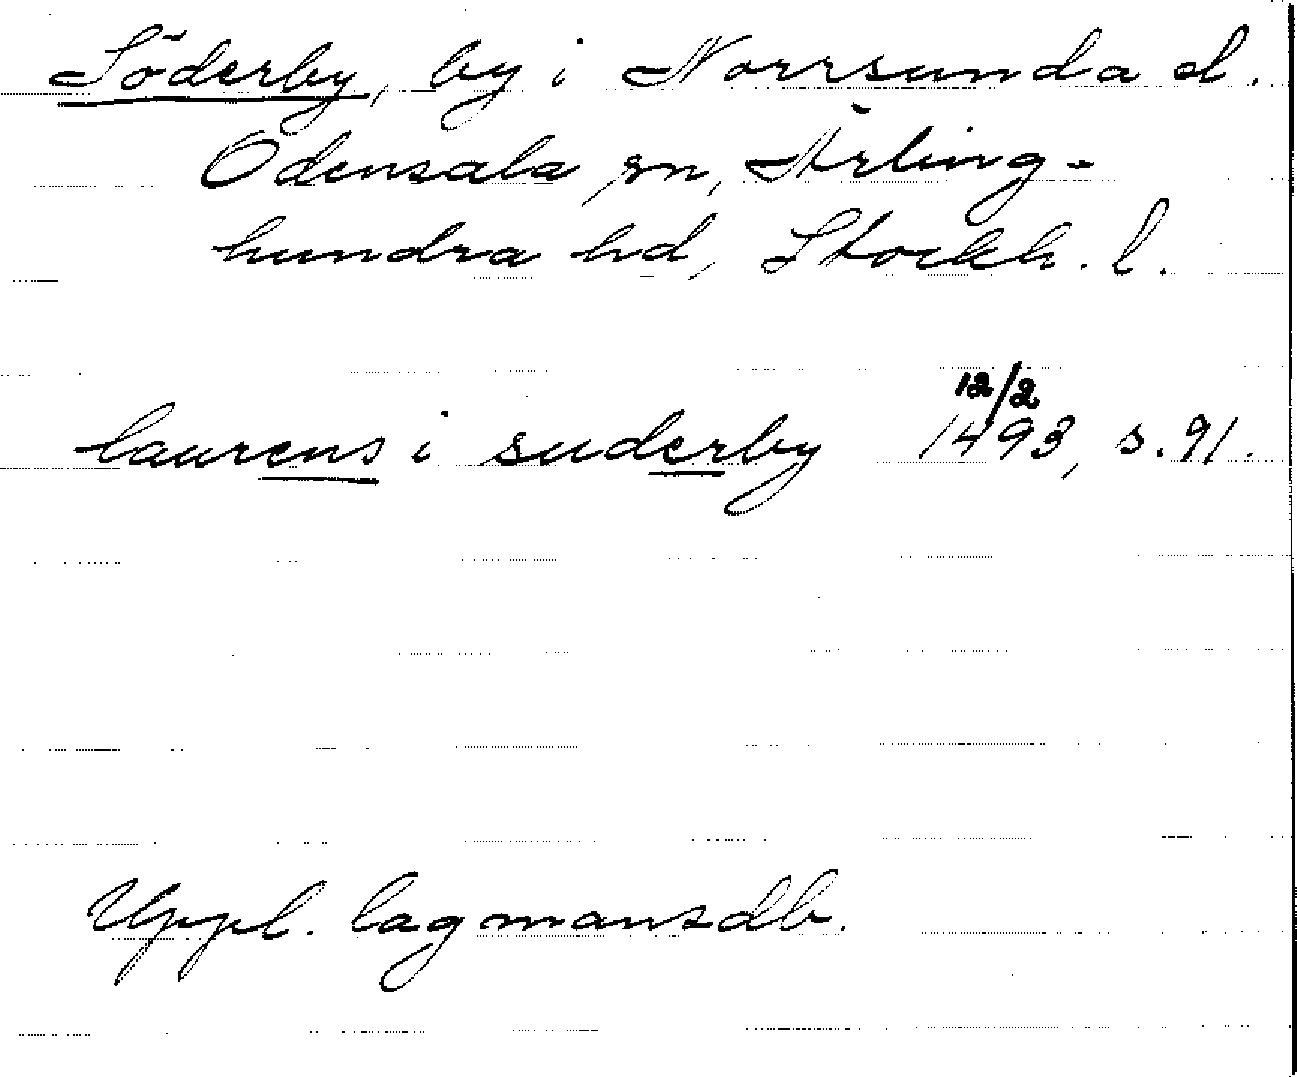 Söderby, by i Norrsunda d.
Odensala sn, Ärling-
hundra hd, Stockh. l.
12/2
laurens i suderby 1493, s. 91.
Uppl. lagmansdb.